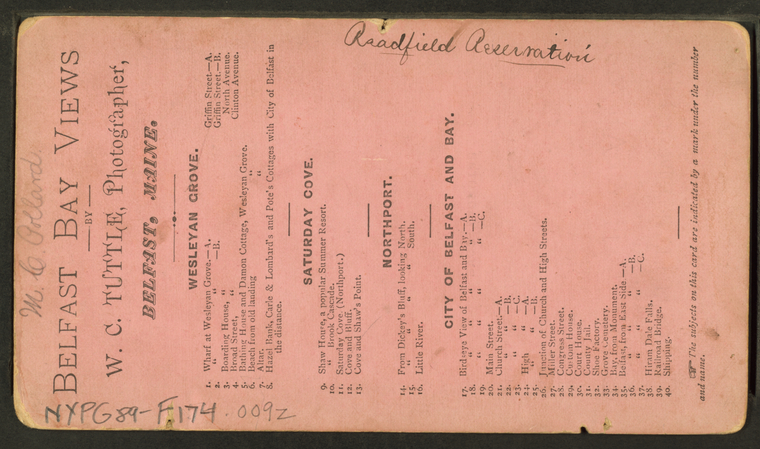 M. C. Dolland.
BELFAST BAY VIEWS
BY
W. C. TUTTLE, Photographer,
BELFAST, MAINE.
WESLEYAN GROVE.
1. Wharf at Wesleyan Grove.—A.
2. " " " —B.
3. Boarding House, " Griffin Street.—A.
4. Broad Street, " Griffin Street.—B.
5. Bathing House and Damon Cottage, Wesleyan Grove. North Avenue.
6. Beach, from old landing " Clinton Avenue.
7. Altar. "
8. Hazel Bank, Carle & Lombard's and Pote's Cottages with City of Belfast in
the distance.
SATURDAY COVE.
9. Shaw House, a popular Summer Resort.
10. " Brook Cascade.
11. Saturday Cove. (Northport.)
12. Cove and Bluff.
13. Cove and Shaw's Point.
NORTHPORT.
14. From Dickey's Bluff, looking North.
15. " " " " South.
16. Little River.
CITY OF BELFAST AND BAY.
17. Birdseye View of Belfast and Bay.—A.
18. " " " —B.
19. " " " —C.
20. Main Street.
21. Church Street.—A.
22. " " —B.
23. " " —C.
24. High " —A.
25. " " —B.
26. Junction of Church and High Streets.
27. Miller Street.
28. Congress Street.
29. Custom House.
30. Court House.
31. County Jail.
32. Shoe Factory.
33. Grove Cemetery.
34. Bay, from Monument.
35. Belfast, from East Side—A.
36. " " " —B.
37. " " " —C.
38. Hiram Dale Falls.
39. Railroad Bridge.
40. Shipping.
☞ The subjects on this card are indicated by a mark under the number
and name.
Readfield Reservation
NYPG89-F174 .009z